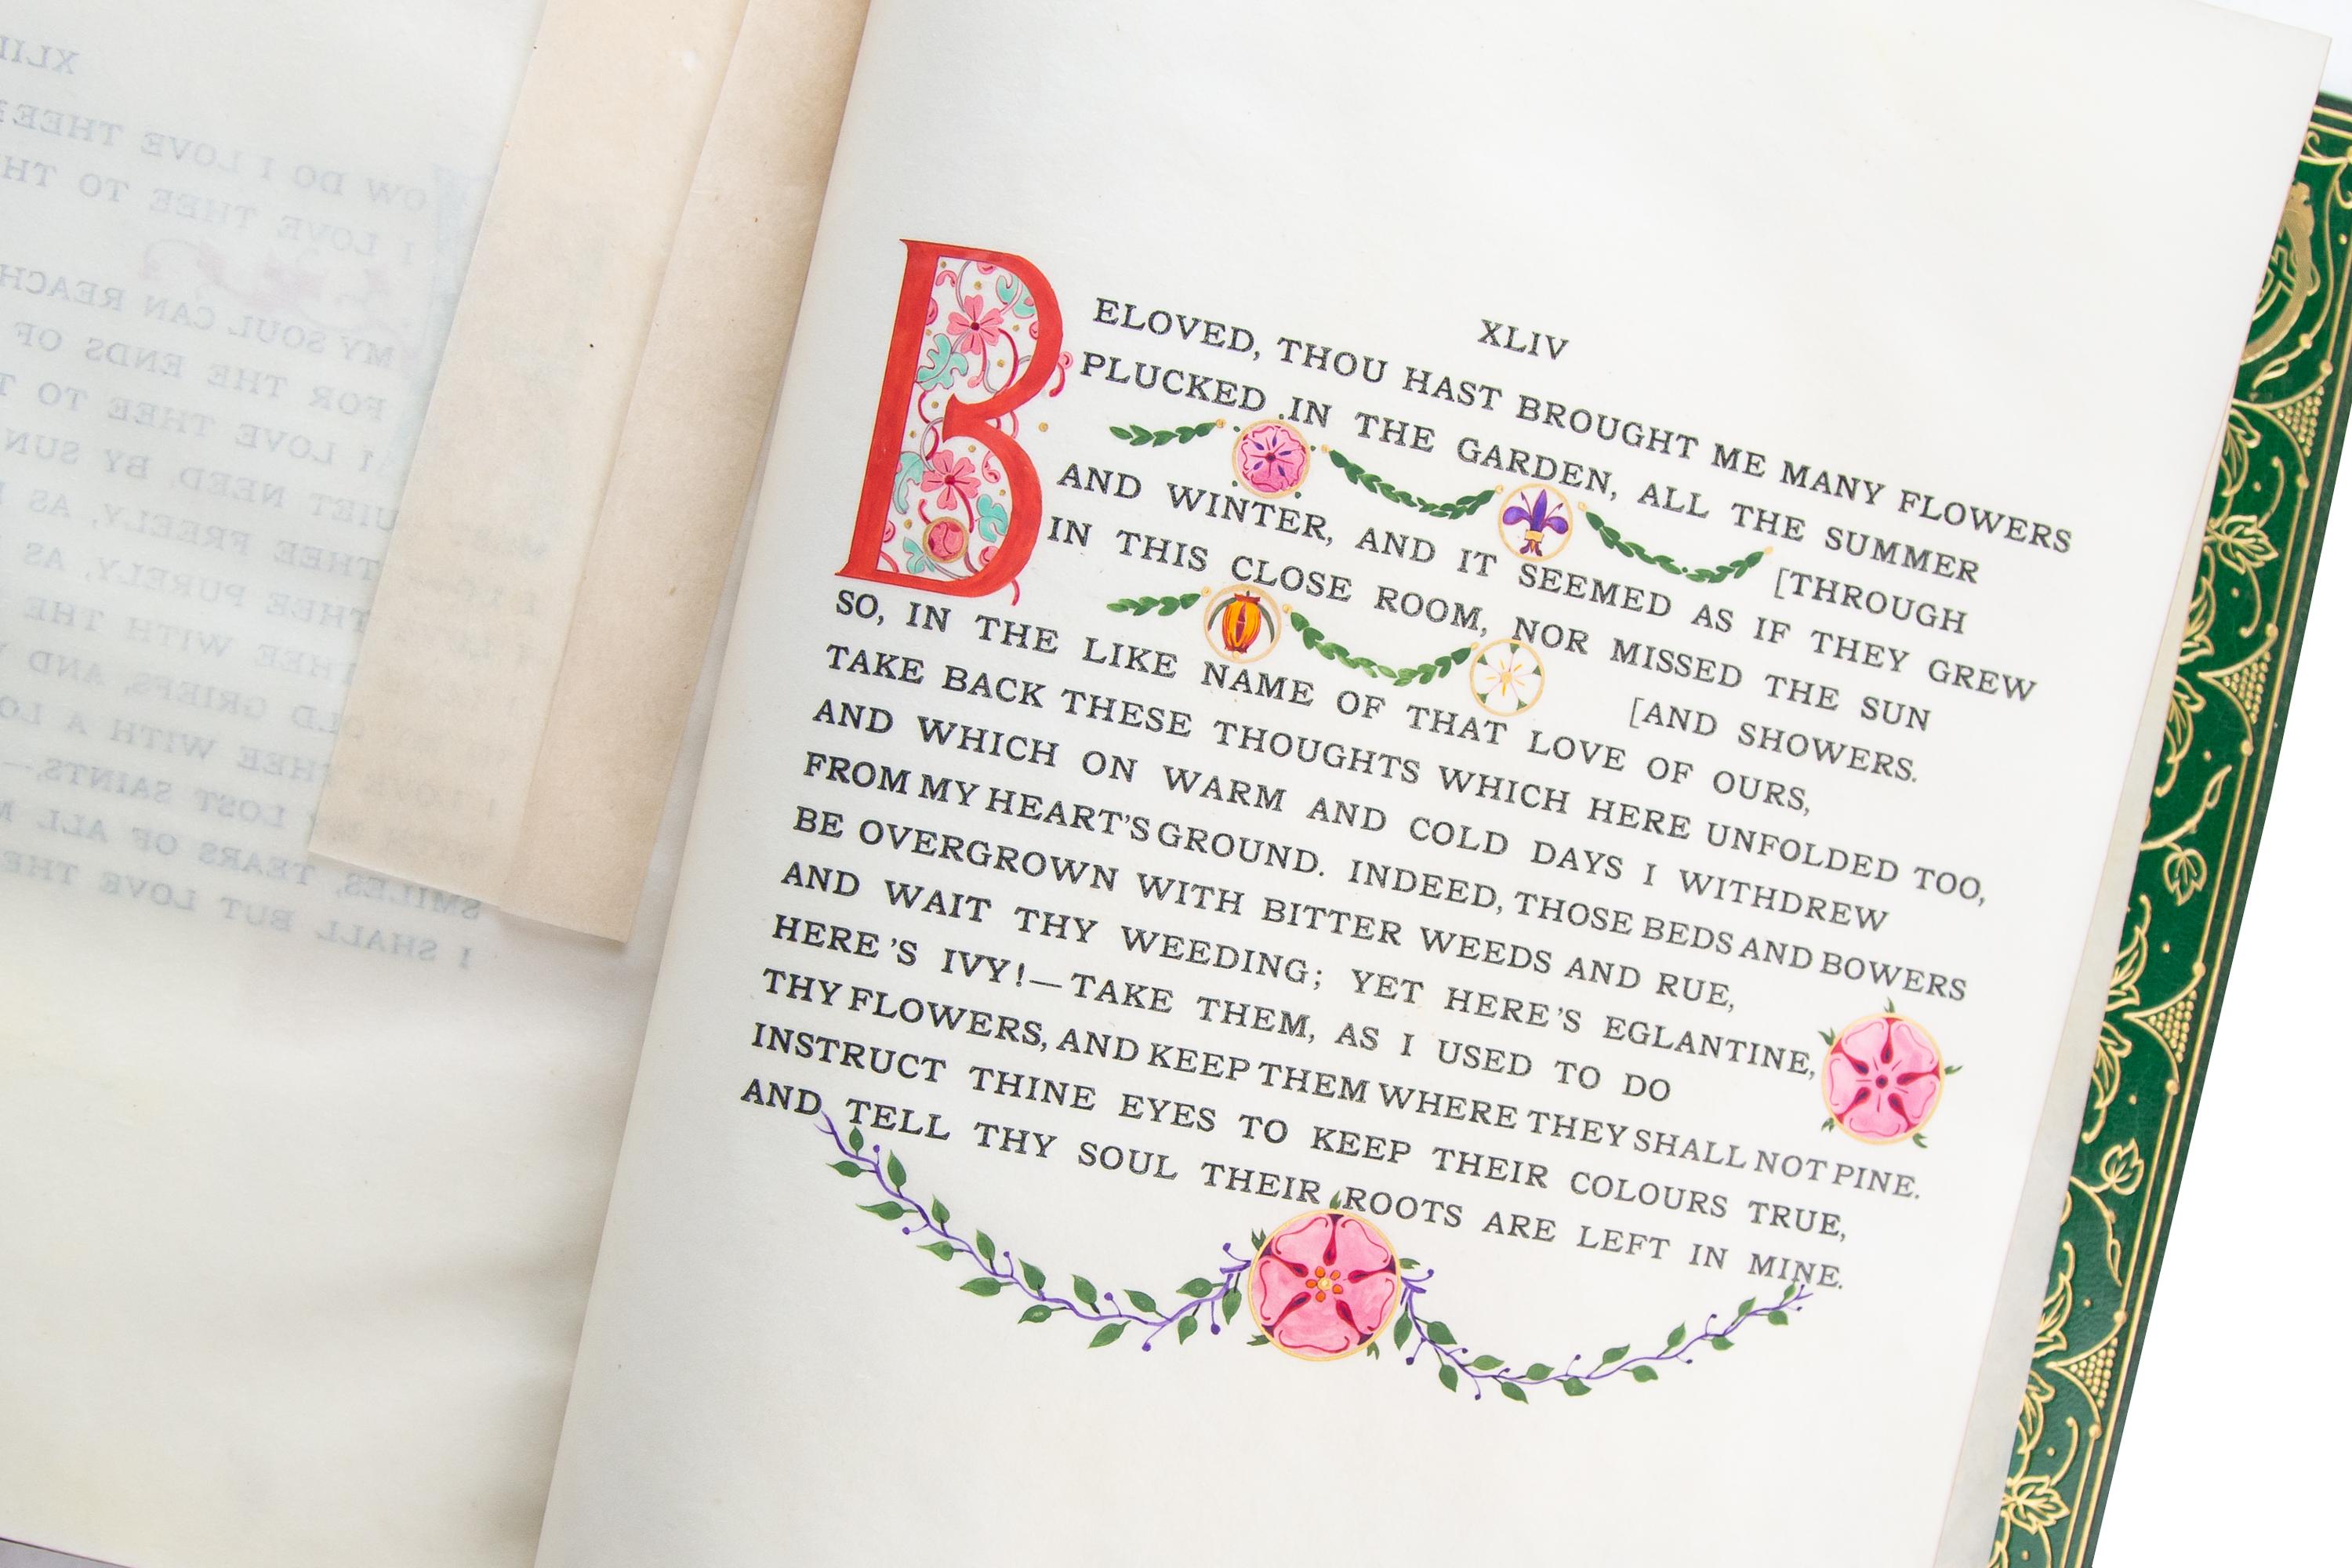 XLIV
BELOVED, THOU HAST BROUGHT ME MANY FLOWERS
PLUCKED IN THE GARDEN, ALL THE SUMMER
[THROUGH
AND WINTER, AND IT SEEMED AS IF THEY GREW
IN THIS CLOSE ROOM, NOR MISSED THE SUN
[AND SHOWERS.
SO, IN THE LIKE NAME OF THAT LOVE OF OURS,
TAKE BACK THESE THOUGHTS WHICH HERE UNFOLDED TOO,
AND WHICH ON WARM AND COLD DAYS I WITHDREW
FROM MY HEART'S GROUND. INDEED, THOSE BEDS AND BOWERS
BE OVERGROWN WITH BITTER WEEDS AND RUE,
AND WAIT THY WEEDING; YET HERE'S EGLANTINE,
HERE'S IVY!—TAKE THEM, AS I USED TO DO
THY FLOWERS, AND KEEP THEM WHERE THEY SHALL NOT PINE.
INSTRUCT THINE EYES TO KEEP THEIR COLOURS TRUE,
AND TELL THY SOUL THEIR ROOTS ARE LEFT IN MINE.